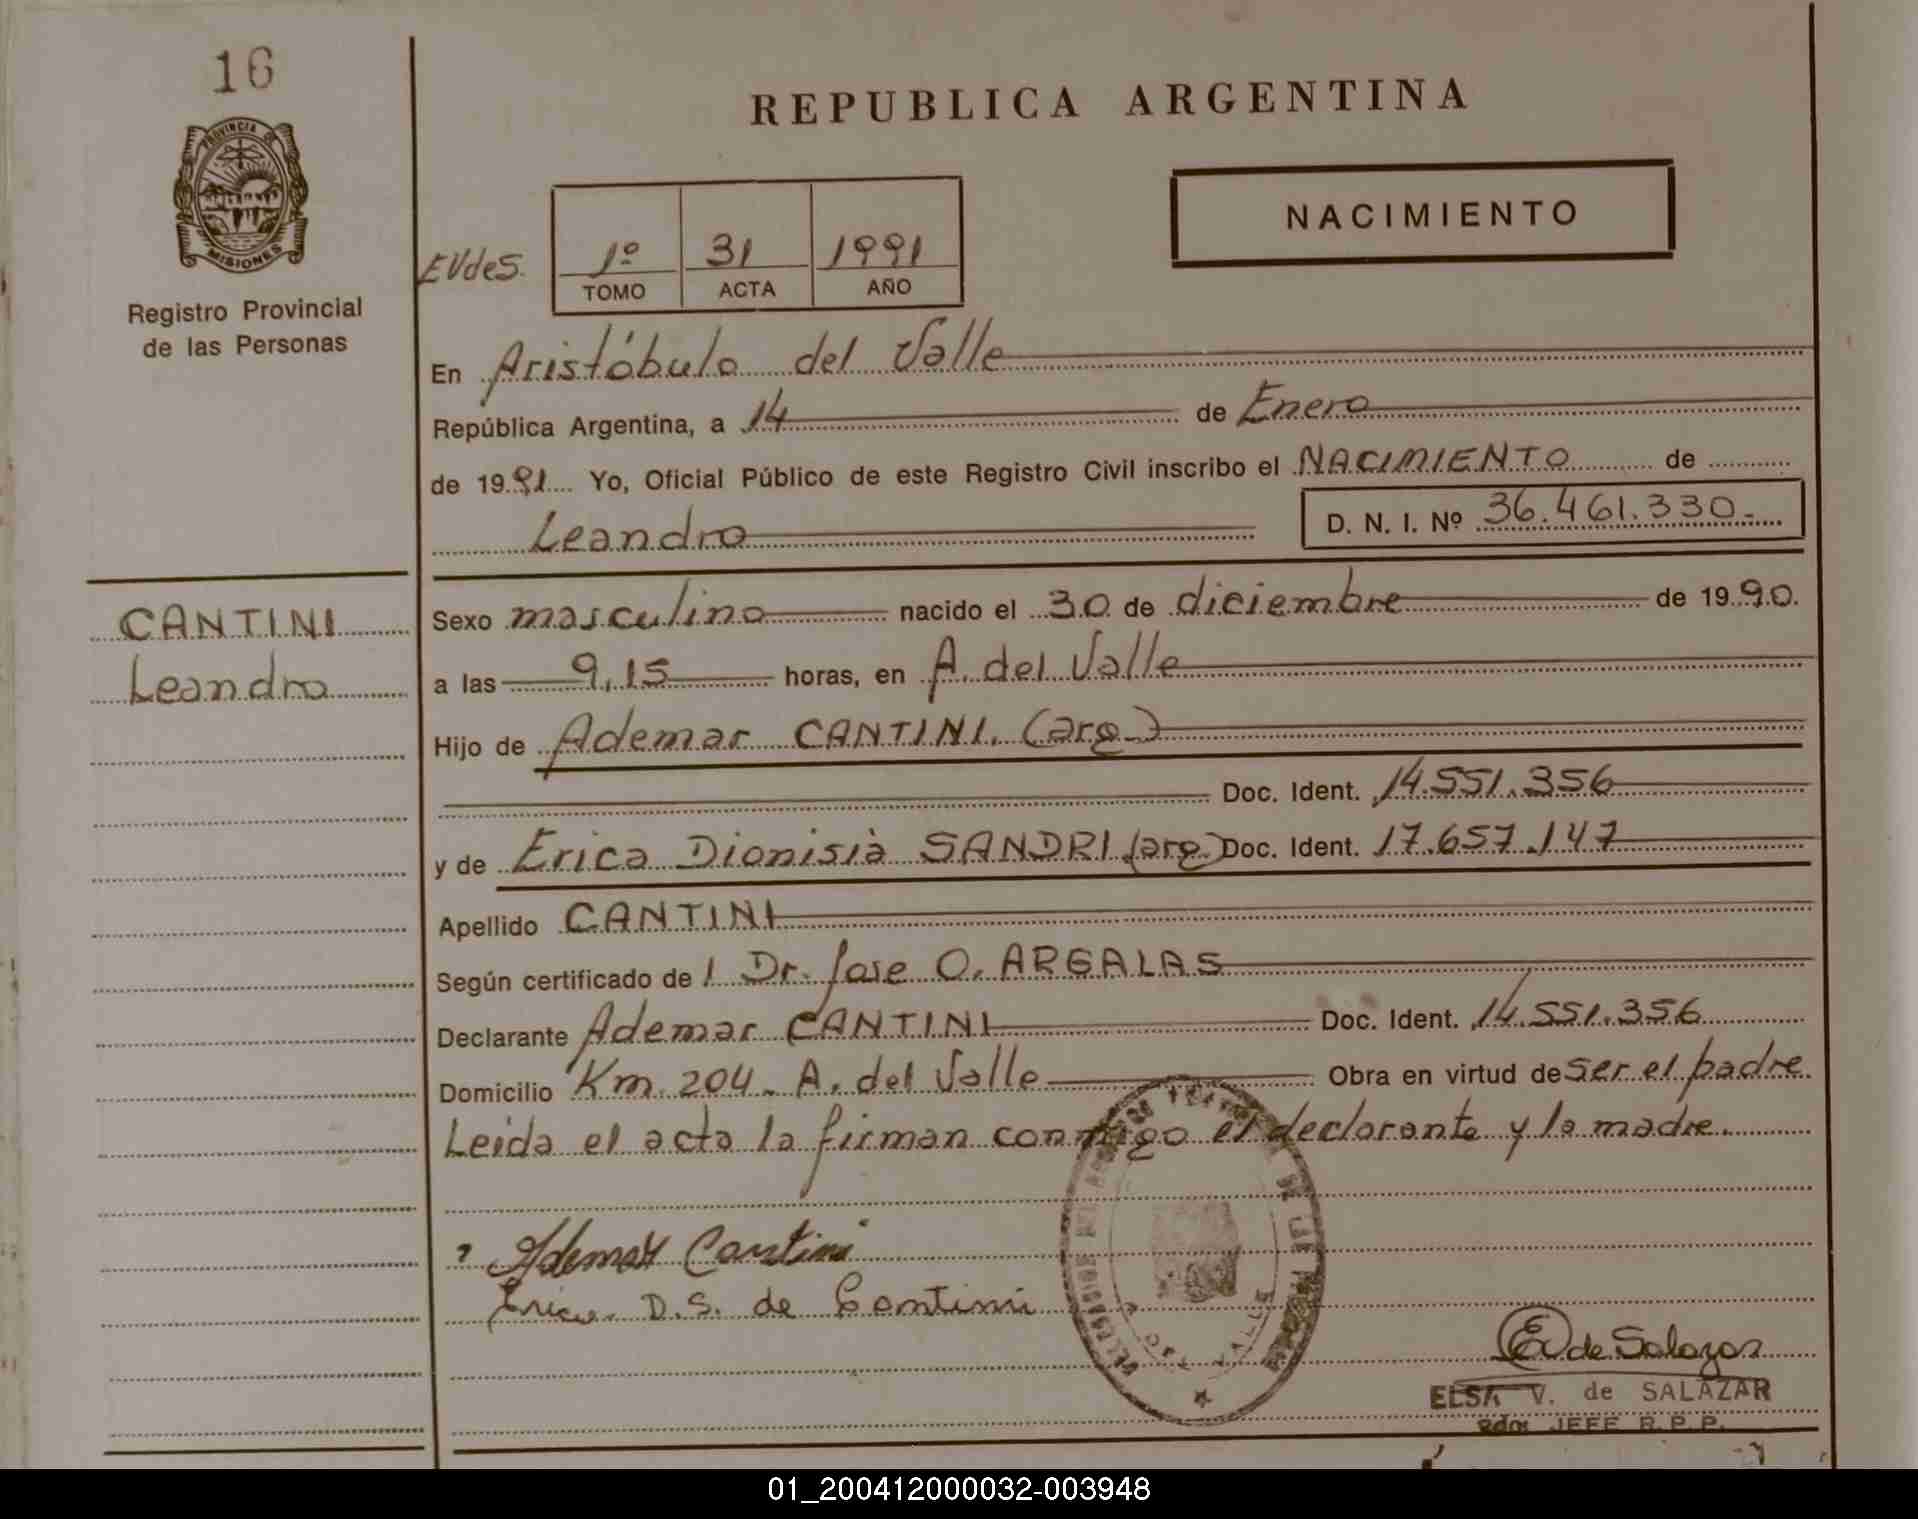 16
REPUBLICA ARGENTINA
PROVINCIA DE
MISIONES
Registro Provincial
de las Personas
NACIMIENTO
EVdeS.
1º 31 1991
TOMO ACTA AÑO
En Aristóbulo del Valle
República Argentina, a 14 de Enero
de 1991 Yo, Oficial Público de este Registro Civil inscribo el NACIMIENTO de
Leandro
D. N. I. Nº 36.461.330.-
CANTINI
Leandro
Sexo masculino nacido el 30 de diciembre de 1990.
a las 9,15 horas, en A. del Valle
Hijo de Ademar CANTINI. (arg.)
Doc. Ident. 14.551.356
y de Erica Dionisia SANDRI (arg.) Doc. Ident. 17.657.147
Apellido CANTINI
Según certificado de l Dr. Jose O. ARGALAS
Declarante Ademar CANTINI Doc. Ident. 14.551.356
Domicilio Km. 204 - A. del Valle Obra en virtud de ser el padre.
Leida el acta la firman conmigo el declarante y la madre.
Ademar Cantini
Erica D.S. de Cantini
DEL VALLE
EV de Salazar
ELSA V. de SALAZAR
JEFE R.P.P.
01_200412000032-003948